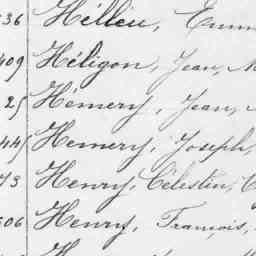 536 Hélleu,
409 Héligon, Jean, M
25 Hémery, Jean,
44 Hemery, Joseph,
73 Henry, Célestin, C
606 Henry, François,